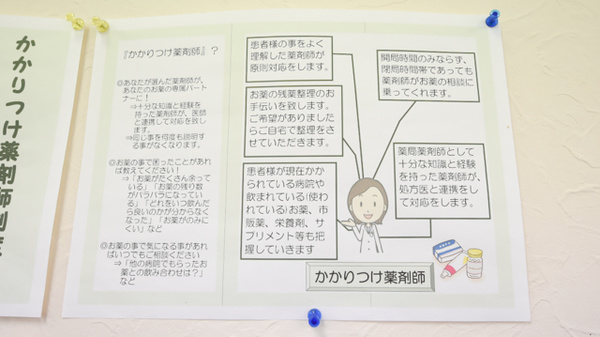 かかりつけ薬剤師制度
『かかりつけ薬剤師』?
◎あなたが選んだ薬剤師が、
あなたのお薬の専属パート
ナーに!
⇒十分な知識と経験を
持った薬剤師が、医師
と連携して対応を致し
ます。
⇒同じ事を何度も説明する
事がなくなります。
◎お薬の事で困ったことがあれ
ば教えてください!
⇒「お薬がたくさん余って
いる」「お薬の残り数
がバラバラになってい
る」「どれをいつ飲んだ
ら良いのかが分からなく
なった」「お薬がのみにく
い」など
◎お薬の事で気になる事があれ
ばいつでもご相談ください
⇒「他の病院でもらったお
薬との飲み合わせは?」
など
患者様の事をよく
理解した薬剤師が
原則対応をします。
お薬の残薬整理のお
手伝いを致します。
ご希望がありました
らご自宅で整理をさ
せていただきます。
患者様が現在かか
られている病院や
飲まれている(使わ
れている)お薬、市
販薬、栄養剤、サ
プリメント等も把
握していきます
開局時間のみならず、
閉局時間帯であっても
薬剤師がお薬の相談に
乗ってくれます。
薬局薬剤師として
十分な知識と経験
を持った薬剤師が、
処方医と連携をし
て対応します。
かかりつけ薬剤師